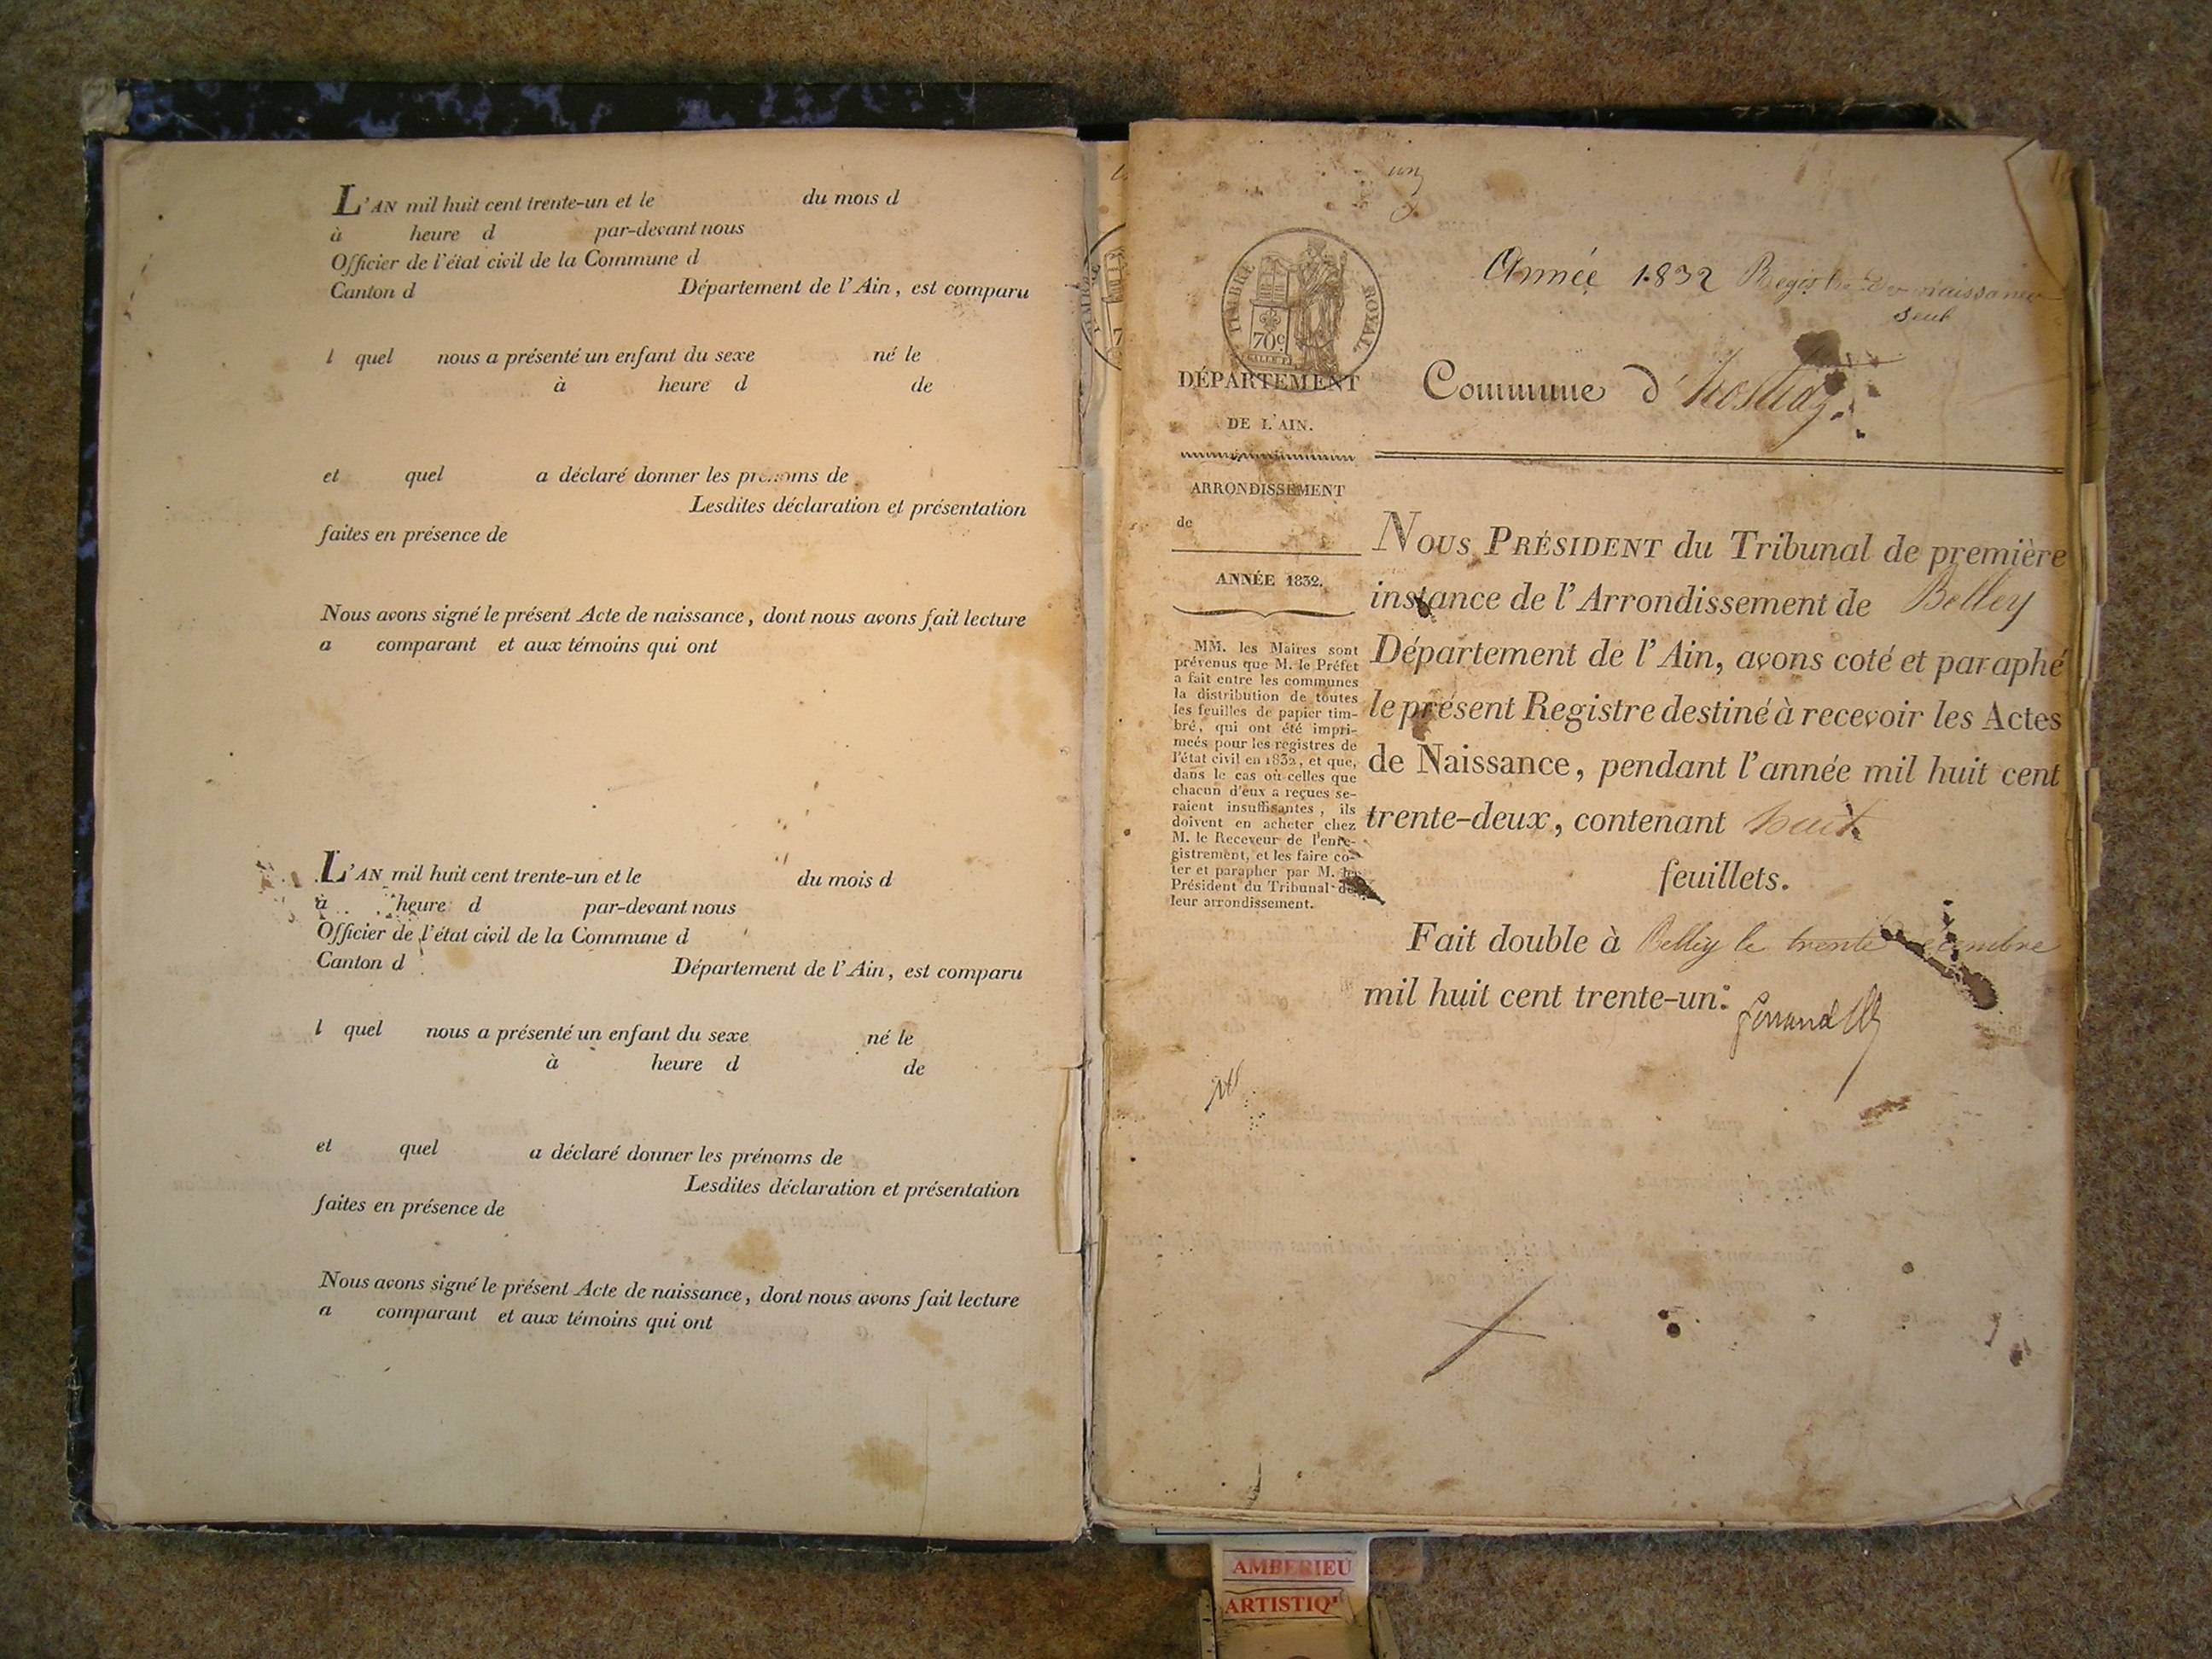 L'AN mil huit cent trente-un et le du mois d
à heure d par-devant nous
Officier de l'état civil de la Commune d
Canton d Département de l'Ain, est comparu
l quel nous a présenté un enfant du sexe né le
à heure d de
et quel a déclaré donner les prénoms de
Lesdites déclaration et présentation
faites en présence de
Nous avons signé le présent Acte de naissance, dont nous avons fait lecture
a comparant et aux témoins qui ont
L'AN mil huit cent trente-un et le du mois d
à heure d par-devant nous
Officier de l'état civil de la Commune d
Canton d Département de l'Ain, est comparu
l quel nous a présenté un enfant du sexe né le
à heure d de
et quel a déclaré donner les prénoms de
Lesdites déclaration et présentation
faites en présence de
Nous avons signé le présent Acte de naissance, dont nous avons fait lecture
a comparant et aux témoins qui ont
un
TIMBRE ROYAL
70c
Année 1832 Registre De naissance
seul
Commune d'hostiaz.
DÉPARTEMENT
DE L'AIN.
ARRONDISSEMENT
de
ANNÉE 1832.
MM. les Maires sont
prévenus que M. le Préfet
a fait entre les communes
la distribution de toutes
les feuilles de papier tim-
bré, qui ont été impri-
meés pour les registres de
l'état civil en 1832, et que,
dans le cas où celles que
chacun d'eux a reçues se-
raient insuffisantes, ils
doivent en acheter chez
M. le Receveur de l'enre-
gistrement, et les faire co-
ter et parapher par M. le
Président du Tribunal de
leur arrondissement.
NOUS PRÉSIDENT du Tribunal de première
instance de l'Arrondissement de Belley
Département de l'Ain, avons coté et paraphé
le présent Registre destiné à recevoir les Actes
de Naissance, pendant l'année mil huit cent
trente-deux, contenant huit
feuillets.
Fait double à Belley le trente decembre
mil huit cent trente-un.
AMBERIEU
ARTISTIQ'